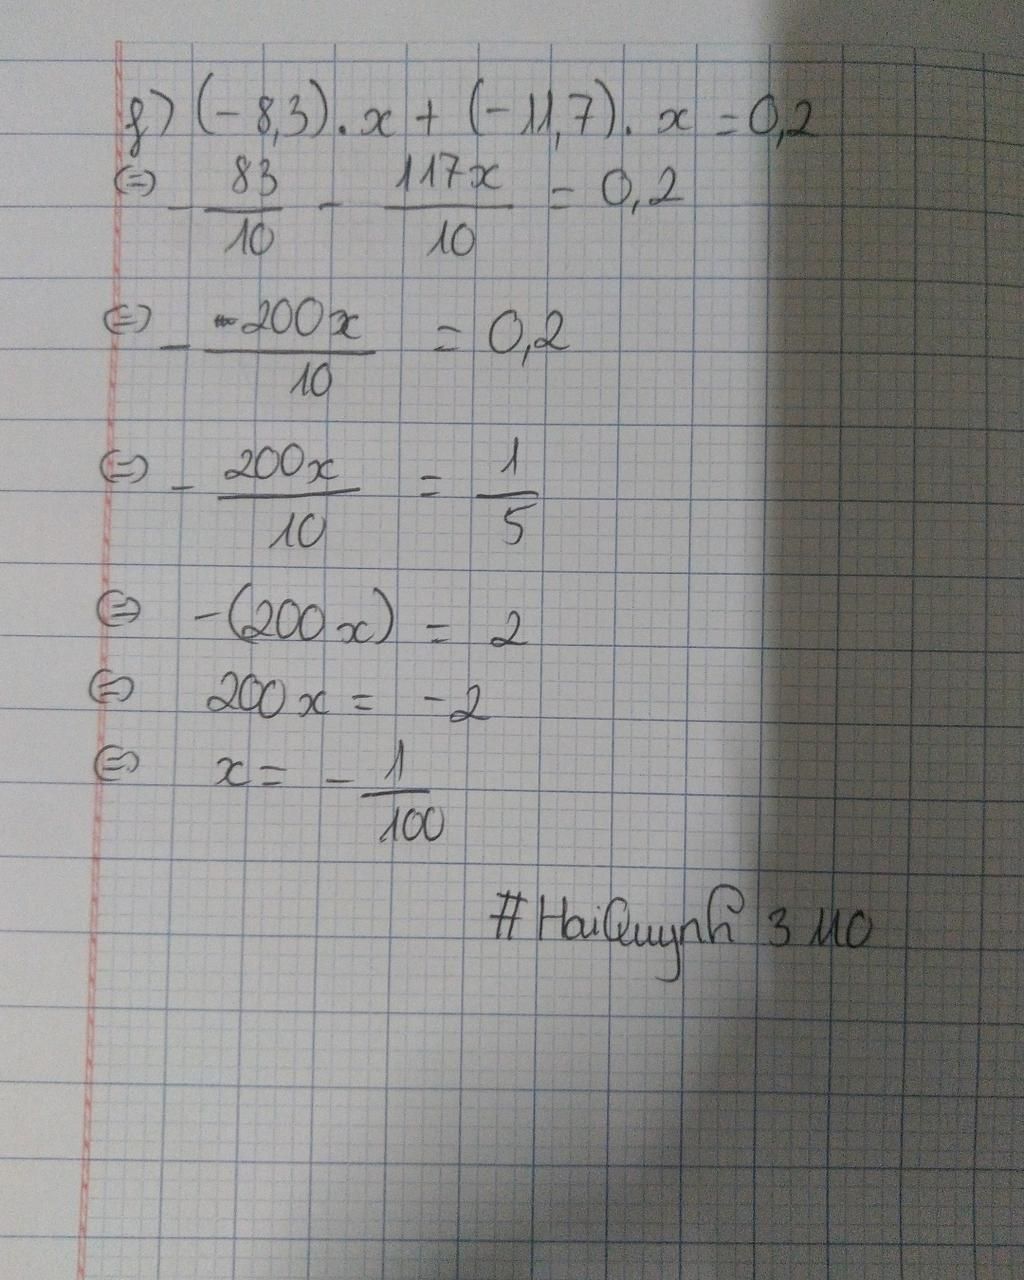 f) (-8,3) . x + (-11,7) . x = 0,2
⇔ - 83/10 - 117x/10 = 0,2
⇔ - -200x/10 = 0,2
⇔ - 200x/10 = 1/5
⇔ -(200x) = 2
⇔ 200x = -2
⇔ x = - 1/100
#HaiQuynh 3 MO